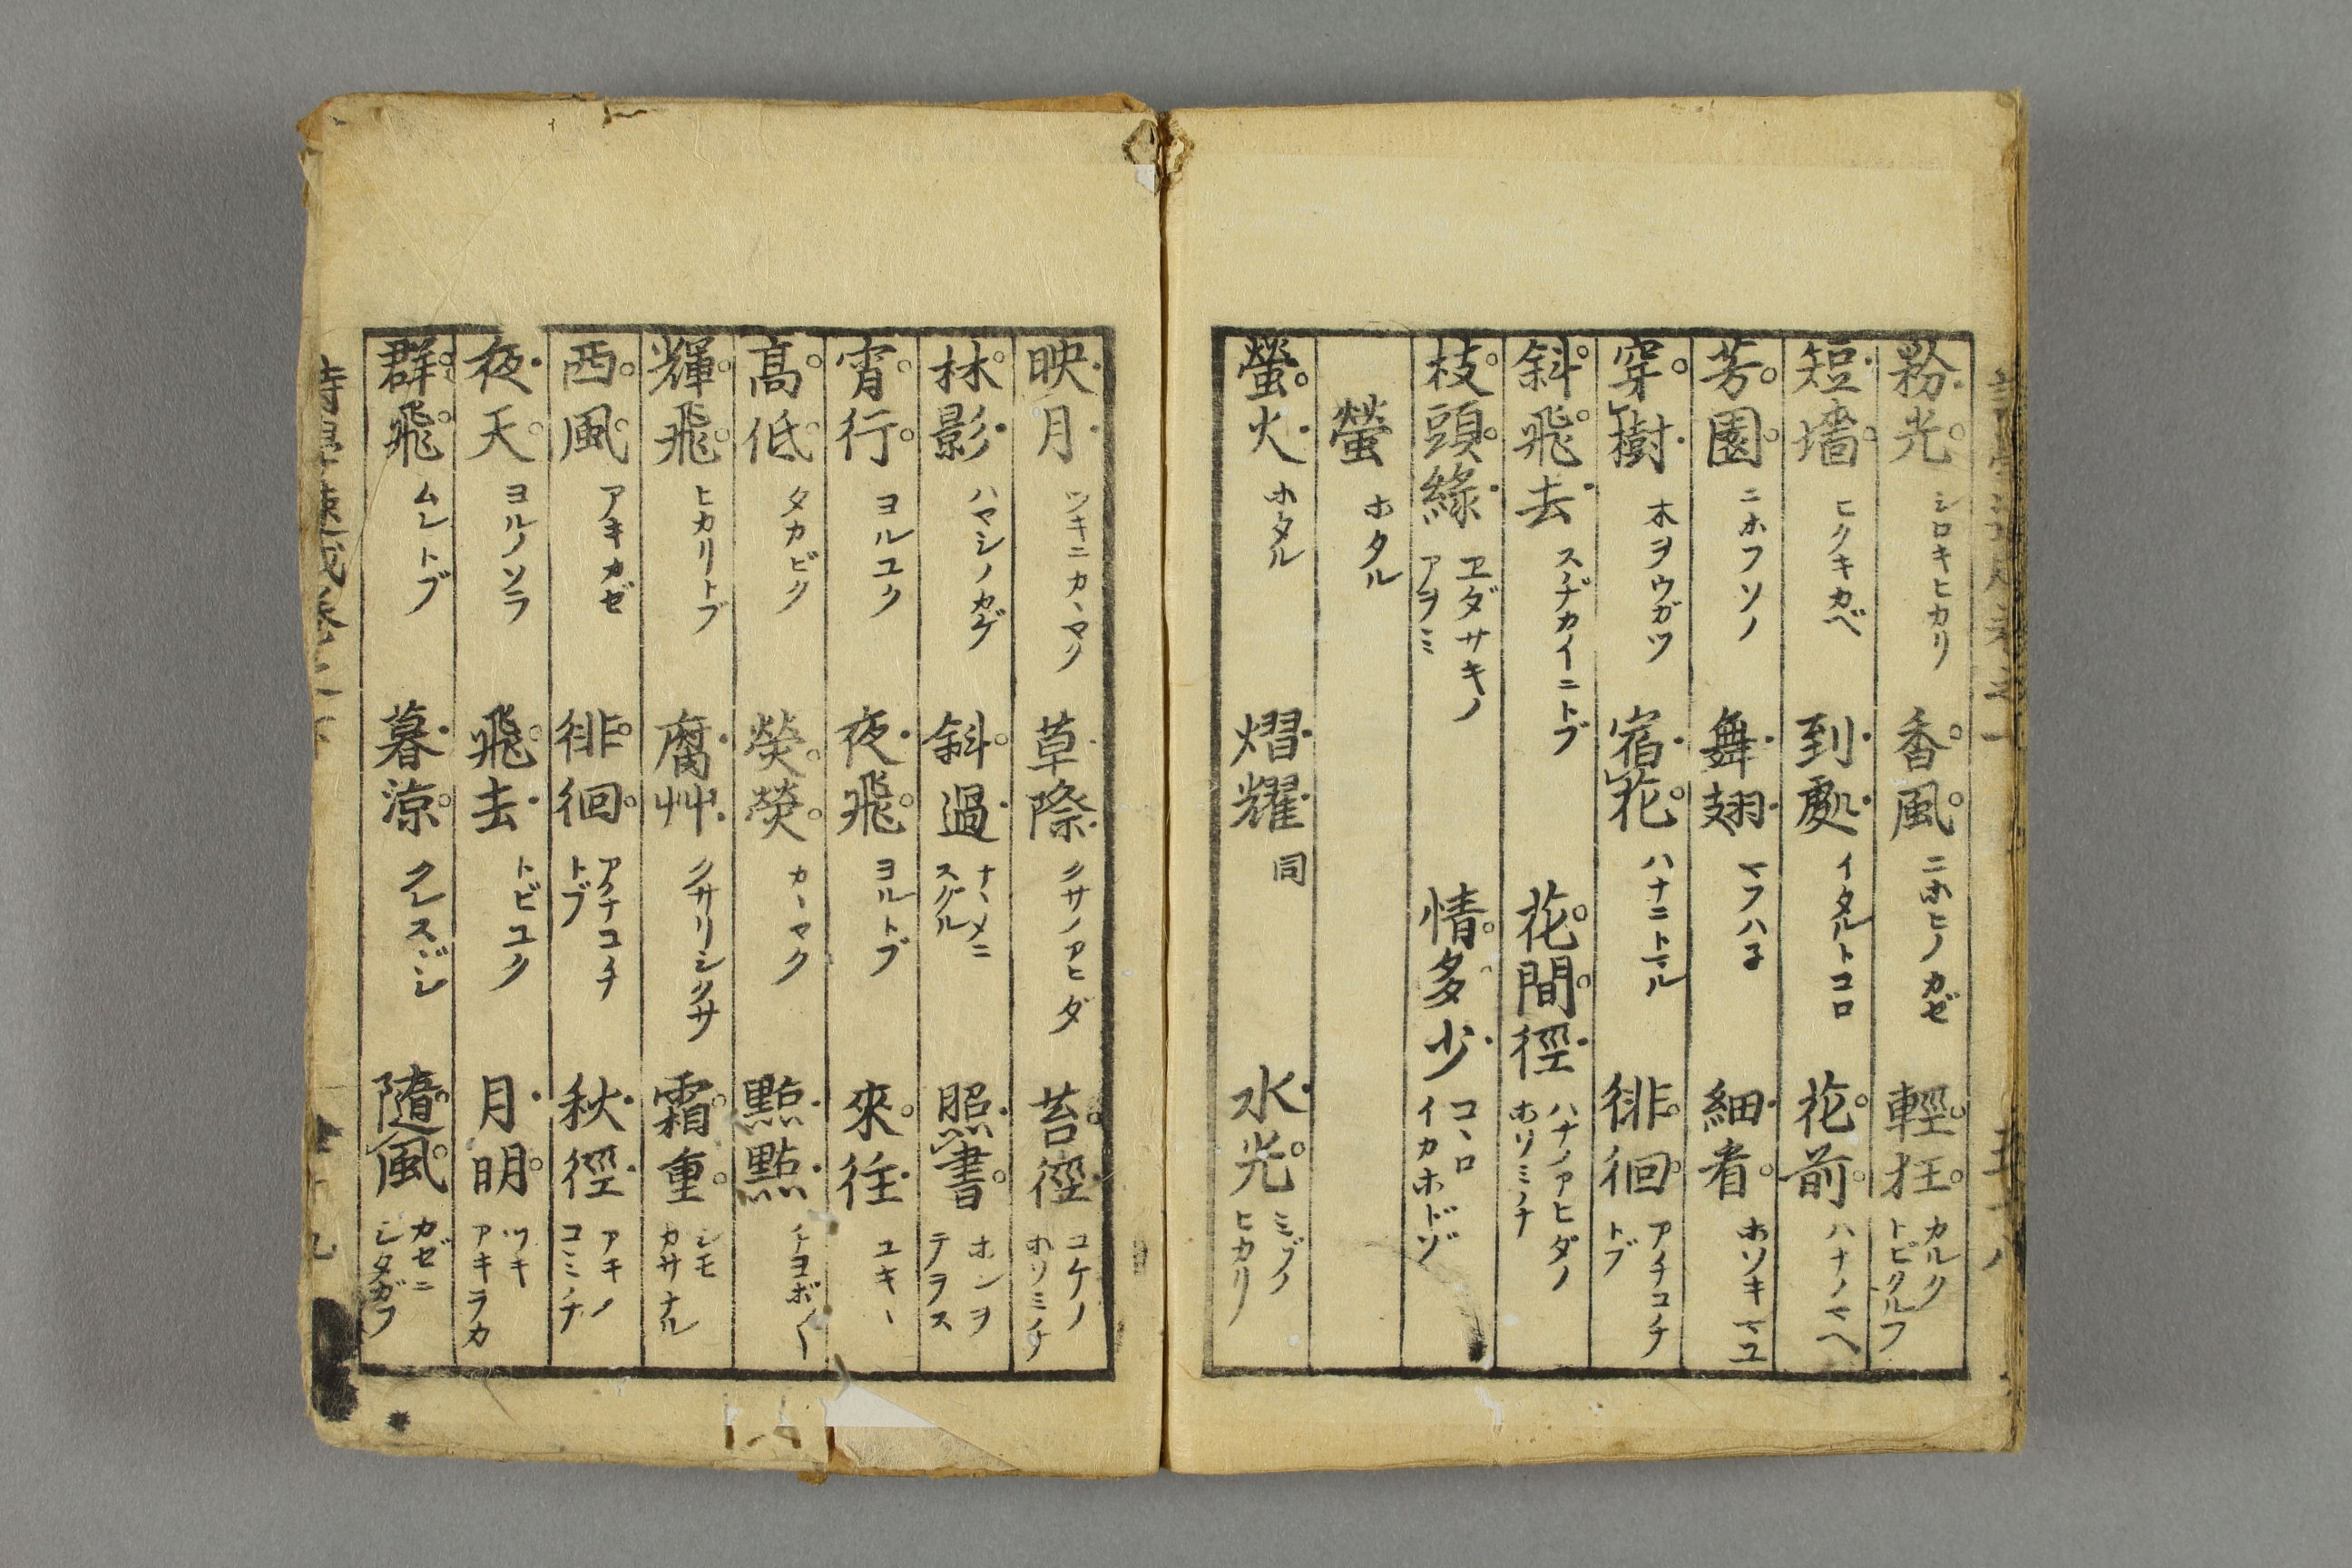 粉光 シロキヒカリ 香風 ニホヒノカゼ 輕狂 カルクトビクルフ
短墻 ヒクキカベ 到處 イタルトコロ 花前 ハナノマヘ
芳園 ニホフソノ 舞翅 マフハ子 細看 ホソキマユ
穿樹 木ヲウガツ 宿花 ハナニトマル 徘徊 アチコチトブ
斜飛去 スヂカイニトブ 花間徑 ハナノアヒダノホソミチ
枝頭綠 ヱダサキノアヲミ 情多少 コヽロイカホドゾ
螢 ホタル
螢火 ホタル 熠耀 同 水光 ミヅノヒカリ
映月 ツキニカヽヤク 草際 クサノアヒダ 苔徑 コケノホソミチ
林影 ハヤシノカゲ 斜過 ナヽメニスグル 照書 ホンヲテラス
宵行 ヨルユク 夜飛 ヨルトブ 來往 ユキヽ
高低 タカビク 熒熒 カヽヤク 點點 チヨボ〱
輝飛 ヒカリトブ 腐艸 クサリシクサ 霜重 シモカサナル
西風 アキカゼ 徘徊 アチコチトブ 秋徑 アキノコミチ
夜天 ヨルノソラ 飛去 トビユク 月明 ツキアキラカ
群飛 ムレトブ 暮涼 クレスヾシ 隨風 カゼニシタガフ